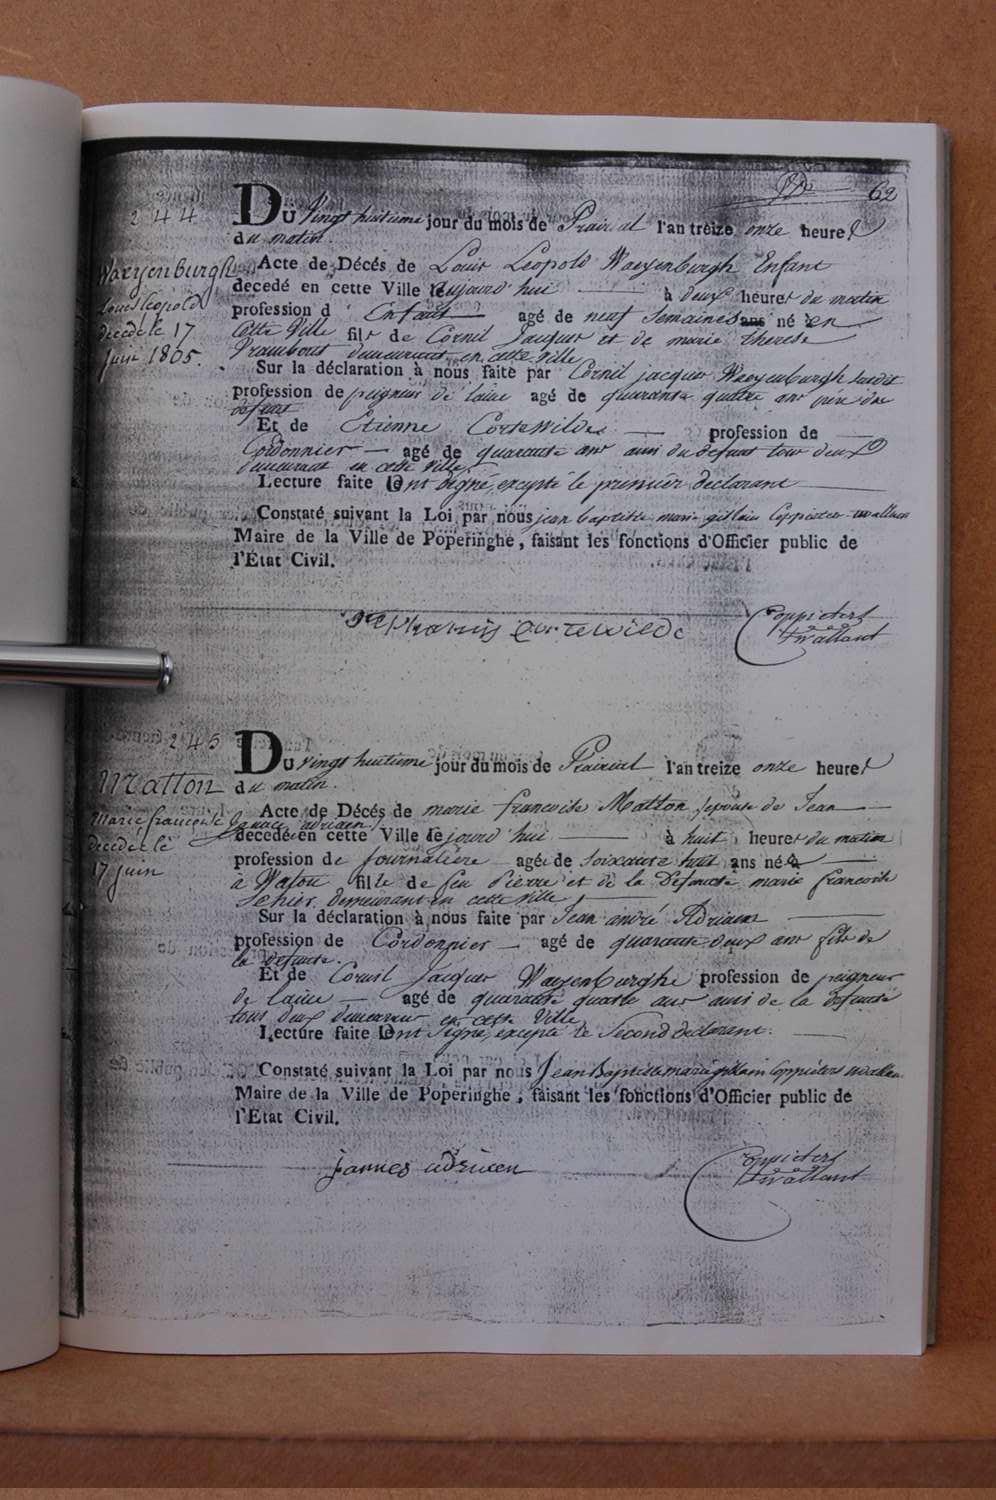 62
244
Du Vingt huitieme jour du mois de Prairial l'an treize onze heures
du matin.
Waeyenburgh
Louis Leopold
décédé le 17
Juin 1805.
Acte de Décés de Louis Leopold Waeyenburgh Enfant
decedé en cette Ville le aujourd'hui à deux heures du matin
profession d Enfant agé de neuf semaines ans né en
Cette Ville fils de Cornil Jacques et de marie therese
demeurant en cette ville
Sur la déclaration à nous faite par Cornil jacques Waeyenburgh susdit
profession de peigneur de laine agé de quarante quatre ans père du
défunt
Et de Etienne Cortewilde profession de
Cordonnier agé de quarante ans ami du defunt tous deux
demeurant en cette ville,
Lecture faite ont signé, excepté le premier declarant
Constaté suivant la Loi par nous jean baptiste marie ghislain Coppieters wallant
Maire de la Ville de Poperinghe, faisant les fonctions d'Officier public de
l'Etat Civil.
Stephanus Cortewilde
Coppieters
twallant
245
Du vingt huitieme jour du mois de Prairial l'an treize onze heures
du matin.
Matton
Marie françoise
décédée le
17 juin
Acte de Décés de marie francoise Matton, epouse de Jean
Ignace adriaen
decedé en cette Ville le jourd'hui à huit heures du matin
profession de Journalière agée de soixante huit ans née
à Watou fille de feu Pierre et de la Defuncte marie francoise
demeurant en cette ville
Sur la déclaration à nous faite par Jean andré Adriaens
profession de Cordonnier agé de quarante deux ans fils de
la defunte.
Et de Cornil Jacques Waeyenburghe profession de peigneur
de laine agé de quarante quatre ans ami de la defunte
tous deux demeurer en cette Ville
Lecture faite ont signé, excepté le Second declarant.
Constaté suivant la Loi par nous Jean Baptiste marie ghislain Coppieters wallant
Maire de la Ville de Poperinghe, faisant les fonctions d'Officier public de
l'Etat Civil.
jannes adriaen
Coppieters
twallant